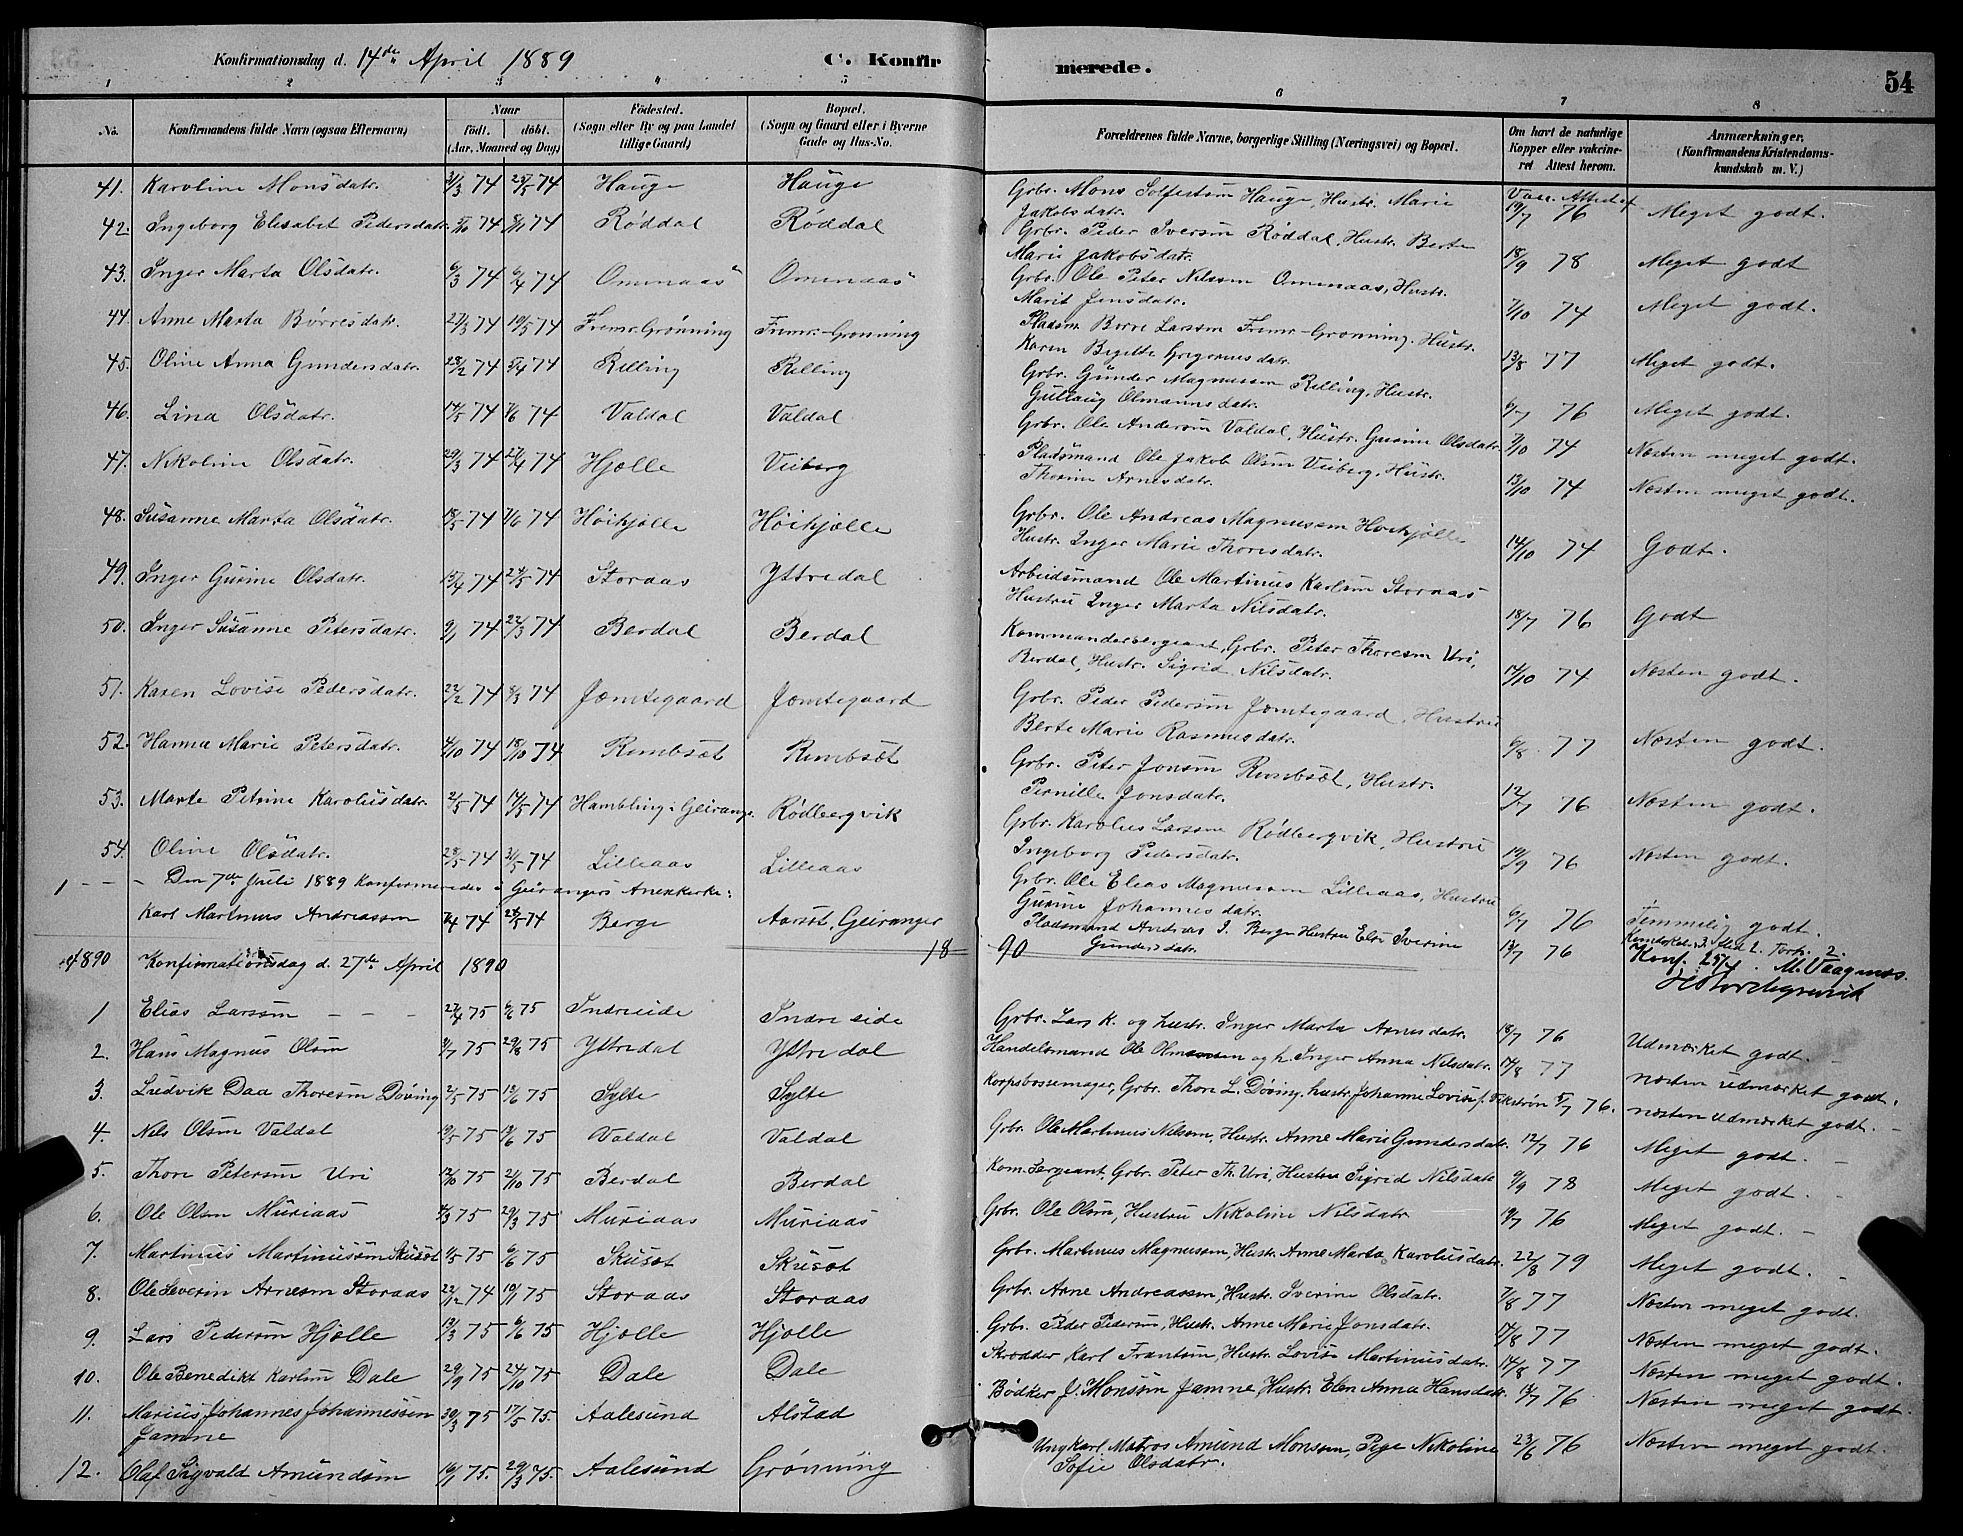 Konfirmationsdag d. 14de April 1889
C. Konfir
merede.
54
1 2 3 4 5 6 7 8
No.
Konfirmandens fulde Navn (ogsaa Efternavn)
Naar
födt. döbt.
(Aar, Maaned og Dag)
Födested.
(Sogn eller By og paa Landet
tillige Gaard)
Bopæl.
(Sogn og Gaard eller i Byerne
Gade og Hus-No.
Forældrenes fulde Navne, borgerlige Stilling (Næringsvei) og Bopæl.
Om havt de naturlige
Kopper eller vakcine-
ret Attest herom.
Anmærkninger.
(Konfirmandens Kristendoms-
kundskab m. V.)
41. Karoline Monsdatr. 31/3 74 25/5 74 Hauge Hauge Grbr. Mons Hauge, Hustr. Marie
Jakobsdatr. 19/7 76 Meget godt.
42. Ingeborg Elisabet Pedersdatr. 74 8/11 74 Røddal Røddal Grbr. Peder Iversøn Røddal, Hustr. Berte
Marie Jakobsdatr. 18/9 78 Meget godt
43. Inger Marta Olsdatr. 6/3 74 6/4 74 Omenaas Omenaas Grbr. Ole Peter Nilssøn Omenaas, Hustr.
Marit Jensdatr. 7/10 74 Meget godt.
44. Anne Marta Børresdatr. 27/3 74 10/5 74 Fremr. Grønning Fremr.-Grønning Pladsm Børre Larssøn Fremr-Grønning, Hustr.
Karen Birgitte Grigoriusdatr. 13/8 77 Meget godt.
45. Oline Anna Gundersdatr. 28/2 74 5/4 74 Relling Relling Grbr. Gunder Magnussøn Relling, Hustr.
Gullaug Olmannsdatr. 6/7 76 Meget godt.
46. Lina Olsdatr. 17/5 74 7/6 74 Valdal Valdal Grbr. Ole Andersøn Valdal, Hustr. Gurine Olsdatr. 7/10 74 Næsten meget godt.
47. Nikoline Olsdatr. 29/3 74 74 Hjelle Veiberg Pladsmand Ole Jakob Olsøn Veiberg, Hustr.
Thorine Arnesdatr. 13/10 74 Næsten meget godt.
48. Susanne Marta Olsdatr. 18/5 74 7/6 74 Höihjølle Höihjælle Grbr. Ole Andreas Magnussøn Höihjølle
Hustr. Inger Marie Thoresdatr. 14/10 74 Godt.
49. Inger Gurine Olsdatr. 74 24/5 74 Storaas Ytredal Arbeidsmand Ole Martinus Karlsøn Storaas
Hustru Inger Marta Nilsdatr. 18/7 76 Godt
50. Inger Susanne Petersdatr. 9/1 74 22/3 74 Berdal Berdal Kommandersergeant, Grbr. Peter Thoresøn Uri,
Berdal, Hustr. Sigrid Nilsdatr. 14/10 74 Næsten godt.
51. Karen Lovise Pedersdatr. 22/2 74 8/3 74 Jemtegaard Jemtegaard Grbr. Peder Pedersøn Jemtegaard, Hustru
Berte Marie Rasmusdatr. 6/8 77 Næsten godt.
52. Hanna Marie Petersdatr. 4/10 74 18/10 74 Rembsøt Rembsøt Grbr. Peter Jonsøn Rembsøt, Hustr.
Pernille Jonsdatr. 12/7 76 Næsten godt.
53. Marte Petrine Karolusdatr. 2/5 74 17/5 74 Hambling i Geiranger Rødbergvik Grbr. Karolus Larssøn Rødbergvik, Hustru
Ingeborg Pedersdatr. 19/9 76 Næsten godt.
54. Oline Olsdatr. 28/5 74 31/5 74 Lilleaas Lilleaas Grbr. Ole Elias Magnussøn Lilleaas, Hustru
Gurine Johannesdatr. 6/7 76 Temmelig godt.
1 - - - Den 7de Juli 1889 Konfirmeredes i Geirangers Anexkirke:
Karl Martinus Andreassøn 7/4 74 74 Berge Aarsøt, Geiranger Pladsmand Andreas I. Berge Hustru Else Iverine
Gundersdatr. 13/7 76
1890 Konfirmationsdag d. 27de April 1890 18 90
Konf. 25/4. M. Vaagenæs.
1 Elias Larssøn - - - 27/4 75 6/6 75 Indreeide Indre eide Grbr. Lars K. og hustr. Inger Marta Arnesdatr. 18/7 76 Udmærket godt. -
2. Hans Magnus Olsøn 9/7 75 29/8 75 Ytredal Ytredal Handelsmand Ole Olmannsen og h. Inger Anna Nilsdatr. 14/8 77 næsten udmærket godt.
3. Ludvik Daa Thoresøn Døving 2/5 75 13/6 75 Sylte Sylte Korpsbøssemager, Grbr. Thore L. Døving, hustr. Johanne Lovise f. Ekstrøn 5/7 76. næsten udmærket godt. -
4. Nils Olsøn Valdal 19/5 75 75 Valdal Valdal Grbr. Ole Martinus Nilsøn, Hustr. Anne Marie Gundersdatr. 12/7 76 Meget godt. -
5. Thore Petersøn Uri 12/10 75 24/10 75 Berdal Berdal Kom. Sergeant, Grbr. Peter Th. Uri, Hustru Sigrid Nilsdatr 9/9 78 Meget godt. -
6. Ole Olsøn Muriaas 4/3 75 29/3 75 Muriaas Muriaas Grbr. Ole Olsøn, Hustru Nikoline Nilsdatr 19/7 76 Meget godt. -
7. Martinus Martinussøn Skusøt 1/5 75 6/6 75 Skusøt Skusøt Grbr. Martinus Magnussøn, Hustr. Anne Marta Karolusdatr. 22/8 79 Meget godt. -
8. Ole Severin Arnesøn Storaas 22/12 74 10/1 75 Storaas Storaas Grbr. Arne Andreassøn, Hustr. Iverine Olsdatr. 7/8 77 Næsten meget godt.
9. Lars Pedersøn Hjelle 13/3 75 6/6 75 Hjelle Hjelle Grbr. Peder Pedersøn, Hustr. Anne Marie Jonsdatr. 17/8 77 Næsten meget godt.
10. Ole Benedikt Karlsøn Dale 29/9 75 24/10 75 Dale Dale Skrædder, Karl Frantsøn, Hustr. Lovise Martinusdatr. 14/8 77 Næsten meget godt.
11. Marius Johannes Johannessøn
Jamne 30/3 75 17/5 75. Aalesund Alstad Bødker J. Monssøn Jamne, Hustr. Elen Anna Hansdatr. 13/7 76 Næsten meget godt.
12. Olaf Sigvald Amundsøn 16/1 75. 29/3 75. Aalesund Grønning Ungkarl, Matros Amund Monsøn, Pige Nikoline
Sofie Olsdatr. 23/6 76 Næsten meget godt.